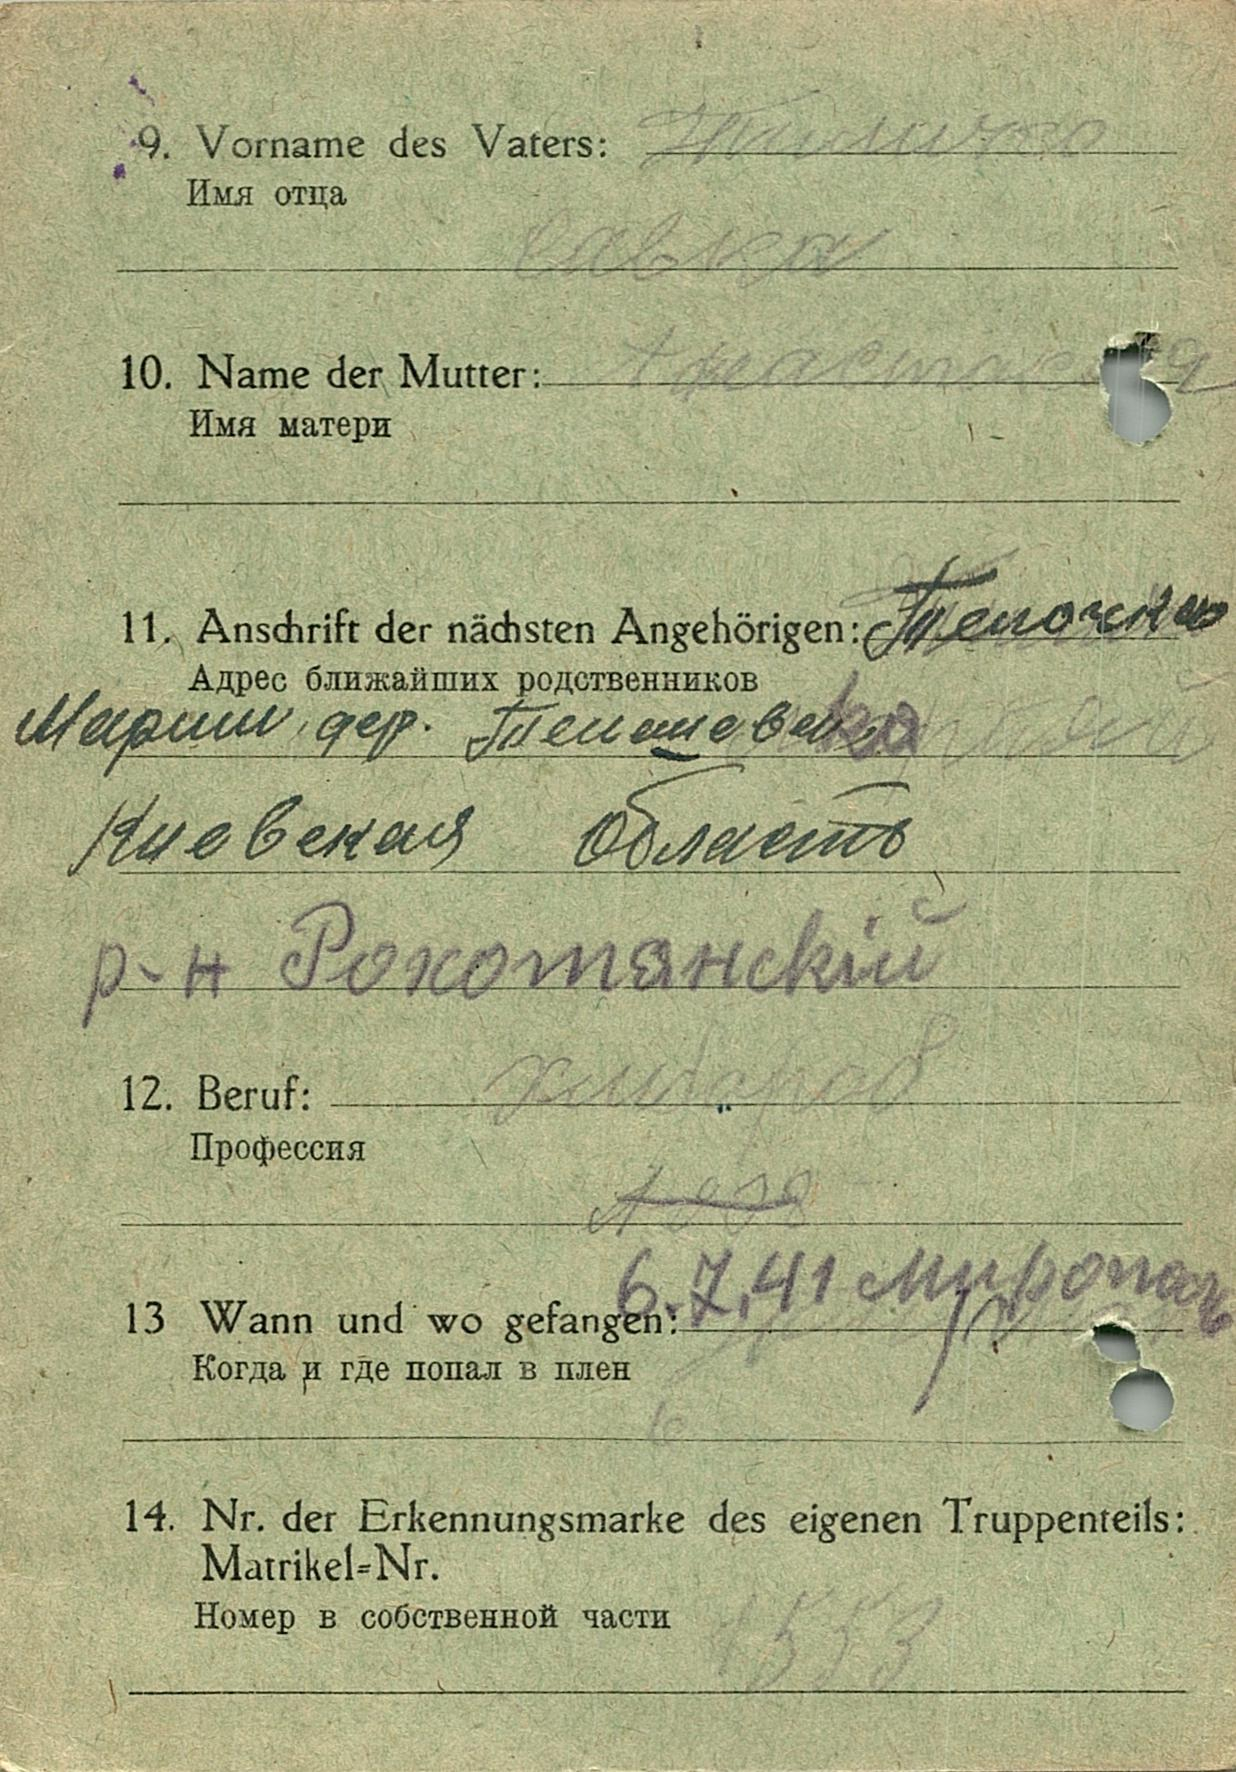 9. Vorname des Vaters:
Имя отца
Савка
10. Name der Mutter:
Имя матери
11. Anschrift der nächsten Angehörigen:
Адрес ближайших родственников
Марии дер.
Киевская Область
р-н Рокотянскій
12. Beruf: хлибороб
Профессия
6.7.41 Миропаль
13 Wann und wo gefangen:
Когда и где попал в плен
14. Nr. der Erkennungsmarke des eigenen Truppenteils:
Matrikel=Nr.
Номер в собственной части
1553